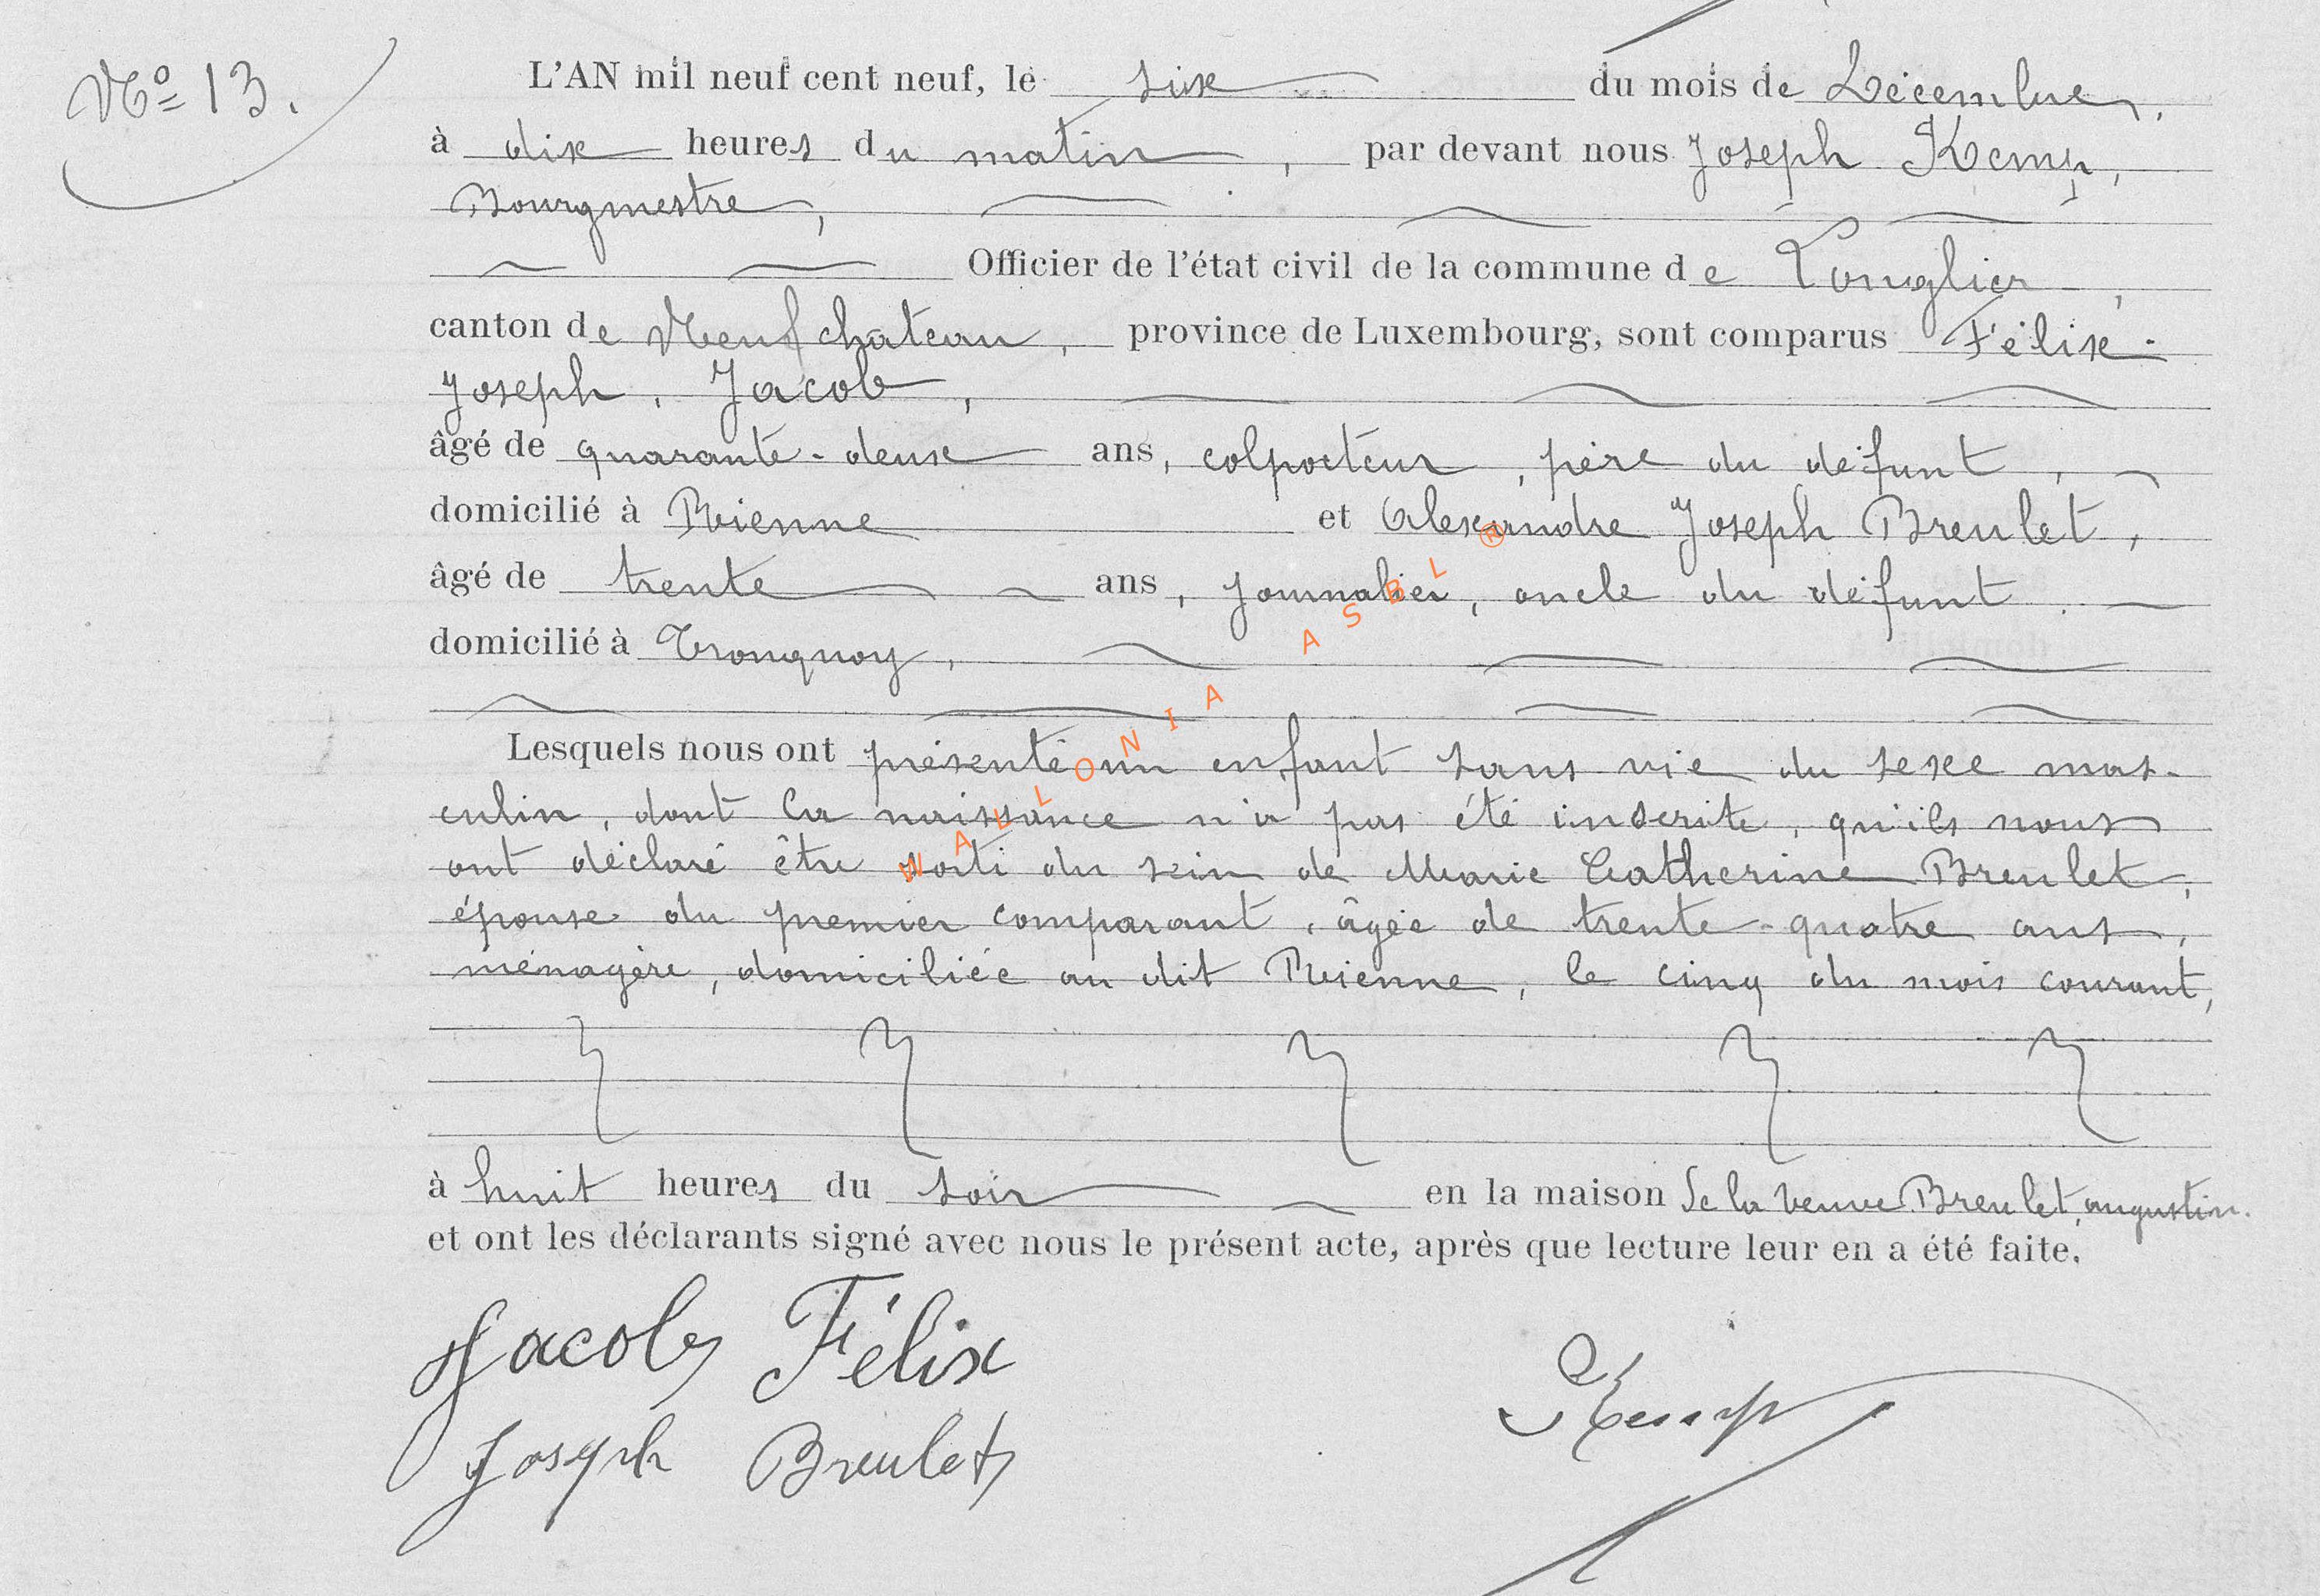 N° 13.
L'AN mil neuf cent neuf, le six du mois de Décembre,
à dix heures du matin, par devant nous Joseph Kemp,
Bourgmestre,
Officier de l'état civil de la commune de Longlier,
canton de Neufchateau, province de Luxembourg, sont comparus Félix-
Joseph, Jacob,
âgé de quarante-deux ans, colporteur, père du défunt,
domicilié à Respelt et Alexandre Joseph Breulet,
âgé de trente ans, journalier, oncle du défunt,
domicilié à Tronquoy,
Lesquels nous ont présenté un enfant sans vie du sexe mas-
culin, dont la naissance n'a pas été inscrite, qu'ils nous
ont déclaré être sorti du sein de Marie Catherine Breulet,
épouse du premier comparant, âgée de trente-quatre ans,
ménagère, domiciliée au dit Rienne, le cinq du mois courant,
à huit heures du soir en la maison de la veuve Breulet, augustin.
et ont les déclarants signé avec nous le présent acte, après que lecture leur en a été faite.
Jacob Félix
Kemp
Joseph Breulet
WALLONIA ASBL ®